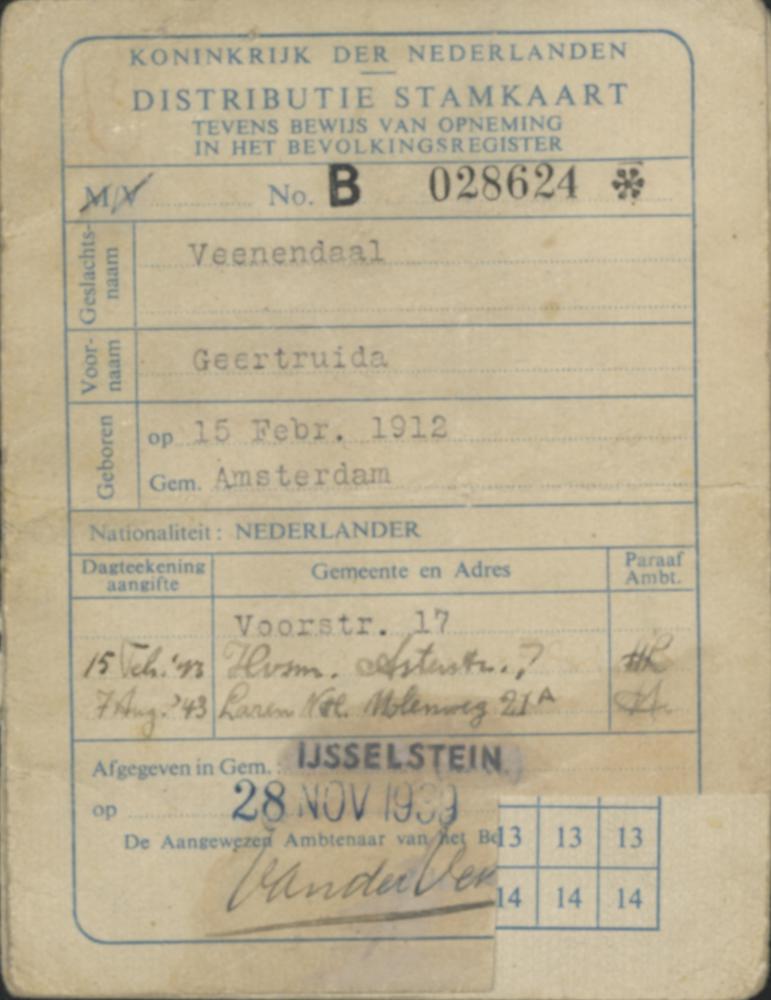 KONINKRIJK DER NEDERLANDEN
DISTRIBUTIE STAMKAART
TEVENS BEWIJS VAN OPNEMING
IN HET BEVOLKINGSREGISTER
M/V No. B 028624
Geslachts-
naam
Veenendaal
Voor-
naam
Geertruida
Geboren
op 15 Febr. 1912
Gem. Amsterdam
Nationaliteit: NEDERLANDER
Dagteekening
aangifte
Gemeente en Adres
Paraaf
Ambt.
Voorstr. 17
15 Feb.
7 Aug. '43 Laren Molenweg 21A
Afgegeven in Gem. IJSSELSTEIN
op 28 NOV 1939
De Aangewezen Ambtenaar van het
13 13 13
14 14 14